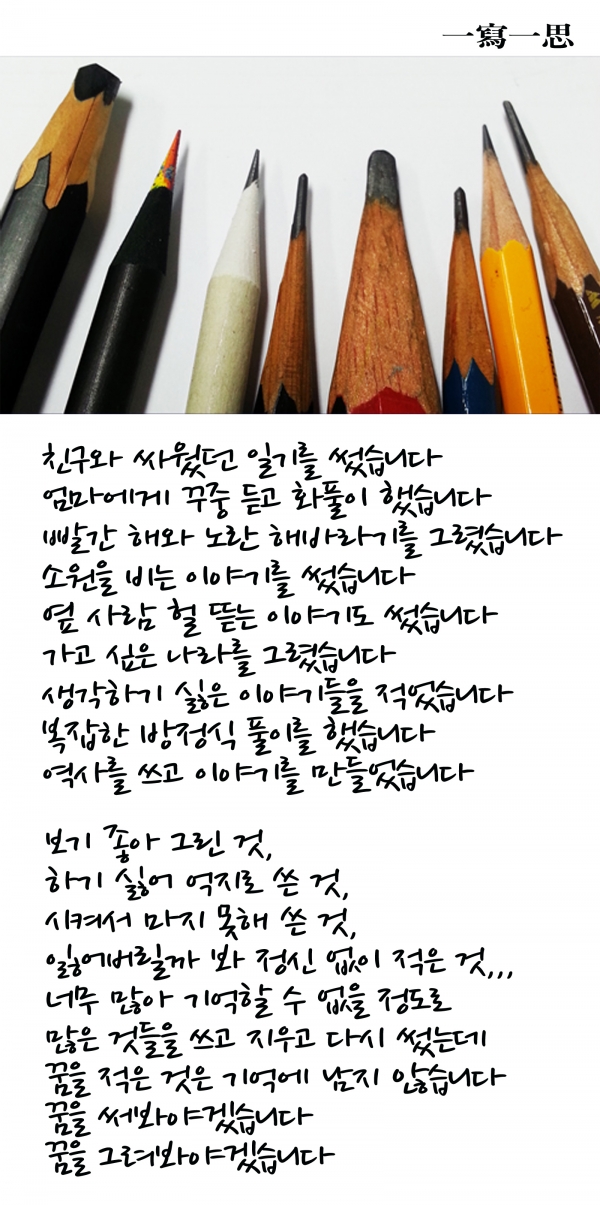 一寫一思
친구와 싸웠던 일기를 썼습니다
엄마에게 꾸중 듣고 화풀이 했습니다
빨간 해와 노란 해바라기를 그렸습니다
소원을 비는 이야기를 썼습니다
옆 사람 헐 뜯는 이야기도 썼습니다
가고 싶은 나라를 그렸습니다
생각하기 싫은 이야기들을 적었습니다
복잡한 방정식 풀이를 했습니다
역사를 쓰고 이야기를 만들었습니다
보기 좋아 그린 것,
하기 싫어 억지로 쓴 것,
시켜서 마지 못해 쓴 것,
잃어버릴까 봐 정신 없이 적은 것,,,
너무 많아 기억할 수 없을 정도로
많은 것들을 쓰고 지우고 다시 썼는데
꿈을 적은 것은 기억에 남지 않습니다
꿈을 써봐야겠습니다
꿈을 그려봐야겠습니다